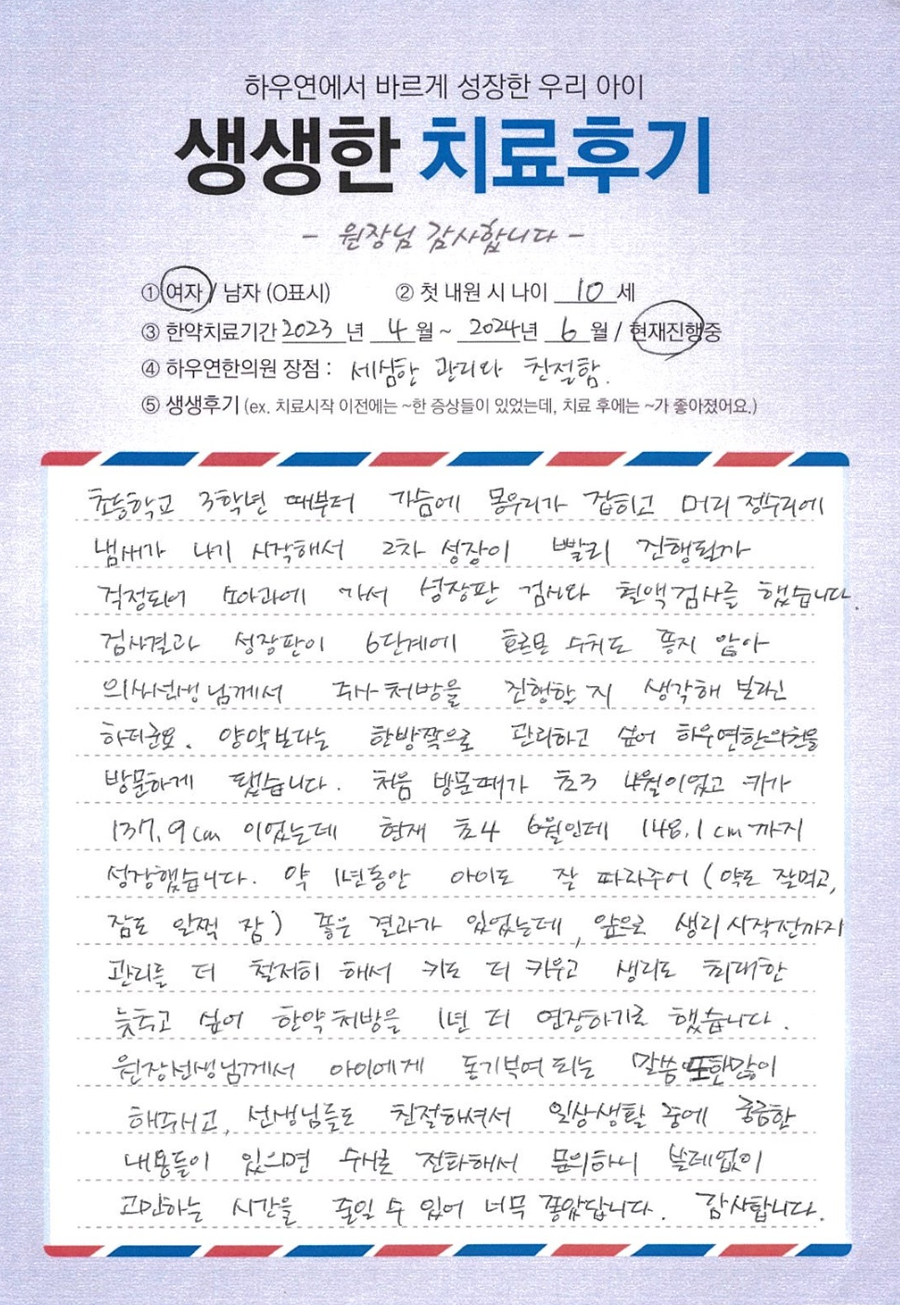 하우연에서 바르게 성장한 우리 아이
생생한 치료후기
- 원장님 감사합니다 -
① 여자 / 남자 (O표시) ② 첫 내원 시 나이 10 세
③ 한약치료기간 2023 년 4 월 ~ 2024 년 6 월 / 현재진행중
④ 하우연한의원 장점 : 세심한 관리와 친절함.
⑤ 생생후기 (ex. 치료시작 이전에는 ~한 증상들이 있었는데, 치료 후에는 ~가 좋아졌어요.)
초등학교 3학년 때부터 가슴에 몽우리가 잡히고 머리 정수리에
냄새가 나기 시작해서 2차 성장이 빨리 진행될까
걱정되어 소아과에 가서 성장판 검사와 혈액검사를 했습니다.
검사결과 성장판이 6단계에 호르몬 수치도 좋지 않아
의사선생님께서 주사처방을 진행할 지 생각해 보라신
하더군요. 양약보다는 한방쪽으로 관리하고 싶어 하우연한의원을
방문하게 됐습니다. 처음 방문때가 초3 4월이었고 키가
137.9cm 이었는데 현재 초4 6월인데 148.1cm까지
성장했습니다. 약 1년동안 아이도 잘 따라주어 (약도 잘먹고,
잠도 일찍 잠) 좋은 결과가 있었는데, 앞으로 생리 시작전까지
관리를 더 철저히 해서 키도 더 키우고 생리도 최대한
늦추고 싶어 한약처방을 1년 더 연장하기로 했습니다.
원장선생님께서 아이에게 동기부여 되는 말씀 또한 많이
해주시고, 선생님들도 친절해셔서 일상생활 중에 궁금한
내용들이 있으면 수시로 전화해서 문의하니 쓸데없이
고민하는 시간을 줄일 수 있어 너무 좋았답니다. 감사합니다.